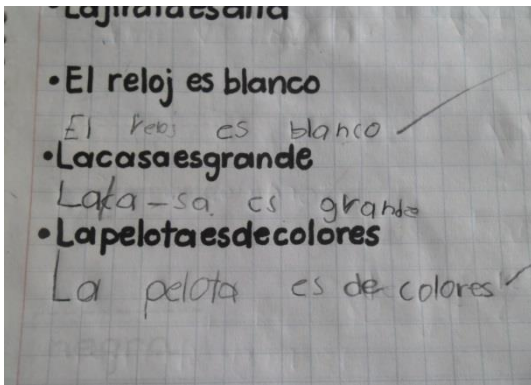 •Lajirafaesalta
•El reloj es blanco
El reloj es blanco
•Lacasaesgrande
Laca-sa es grande
•Lapelotaesdecolores
La pelota es de colores